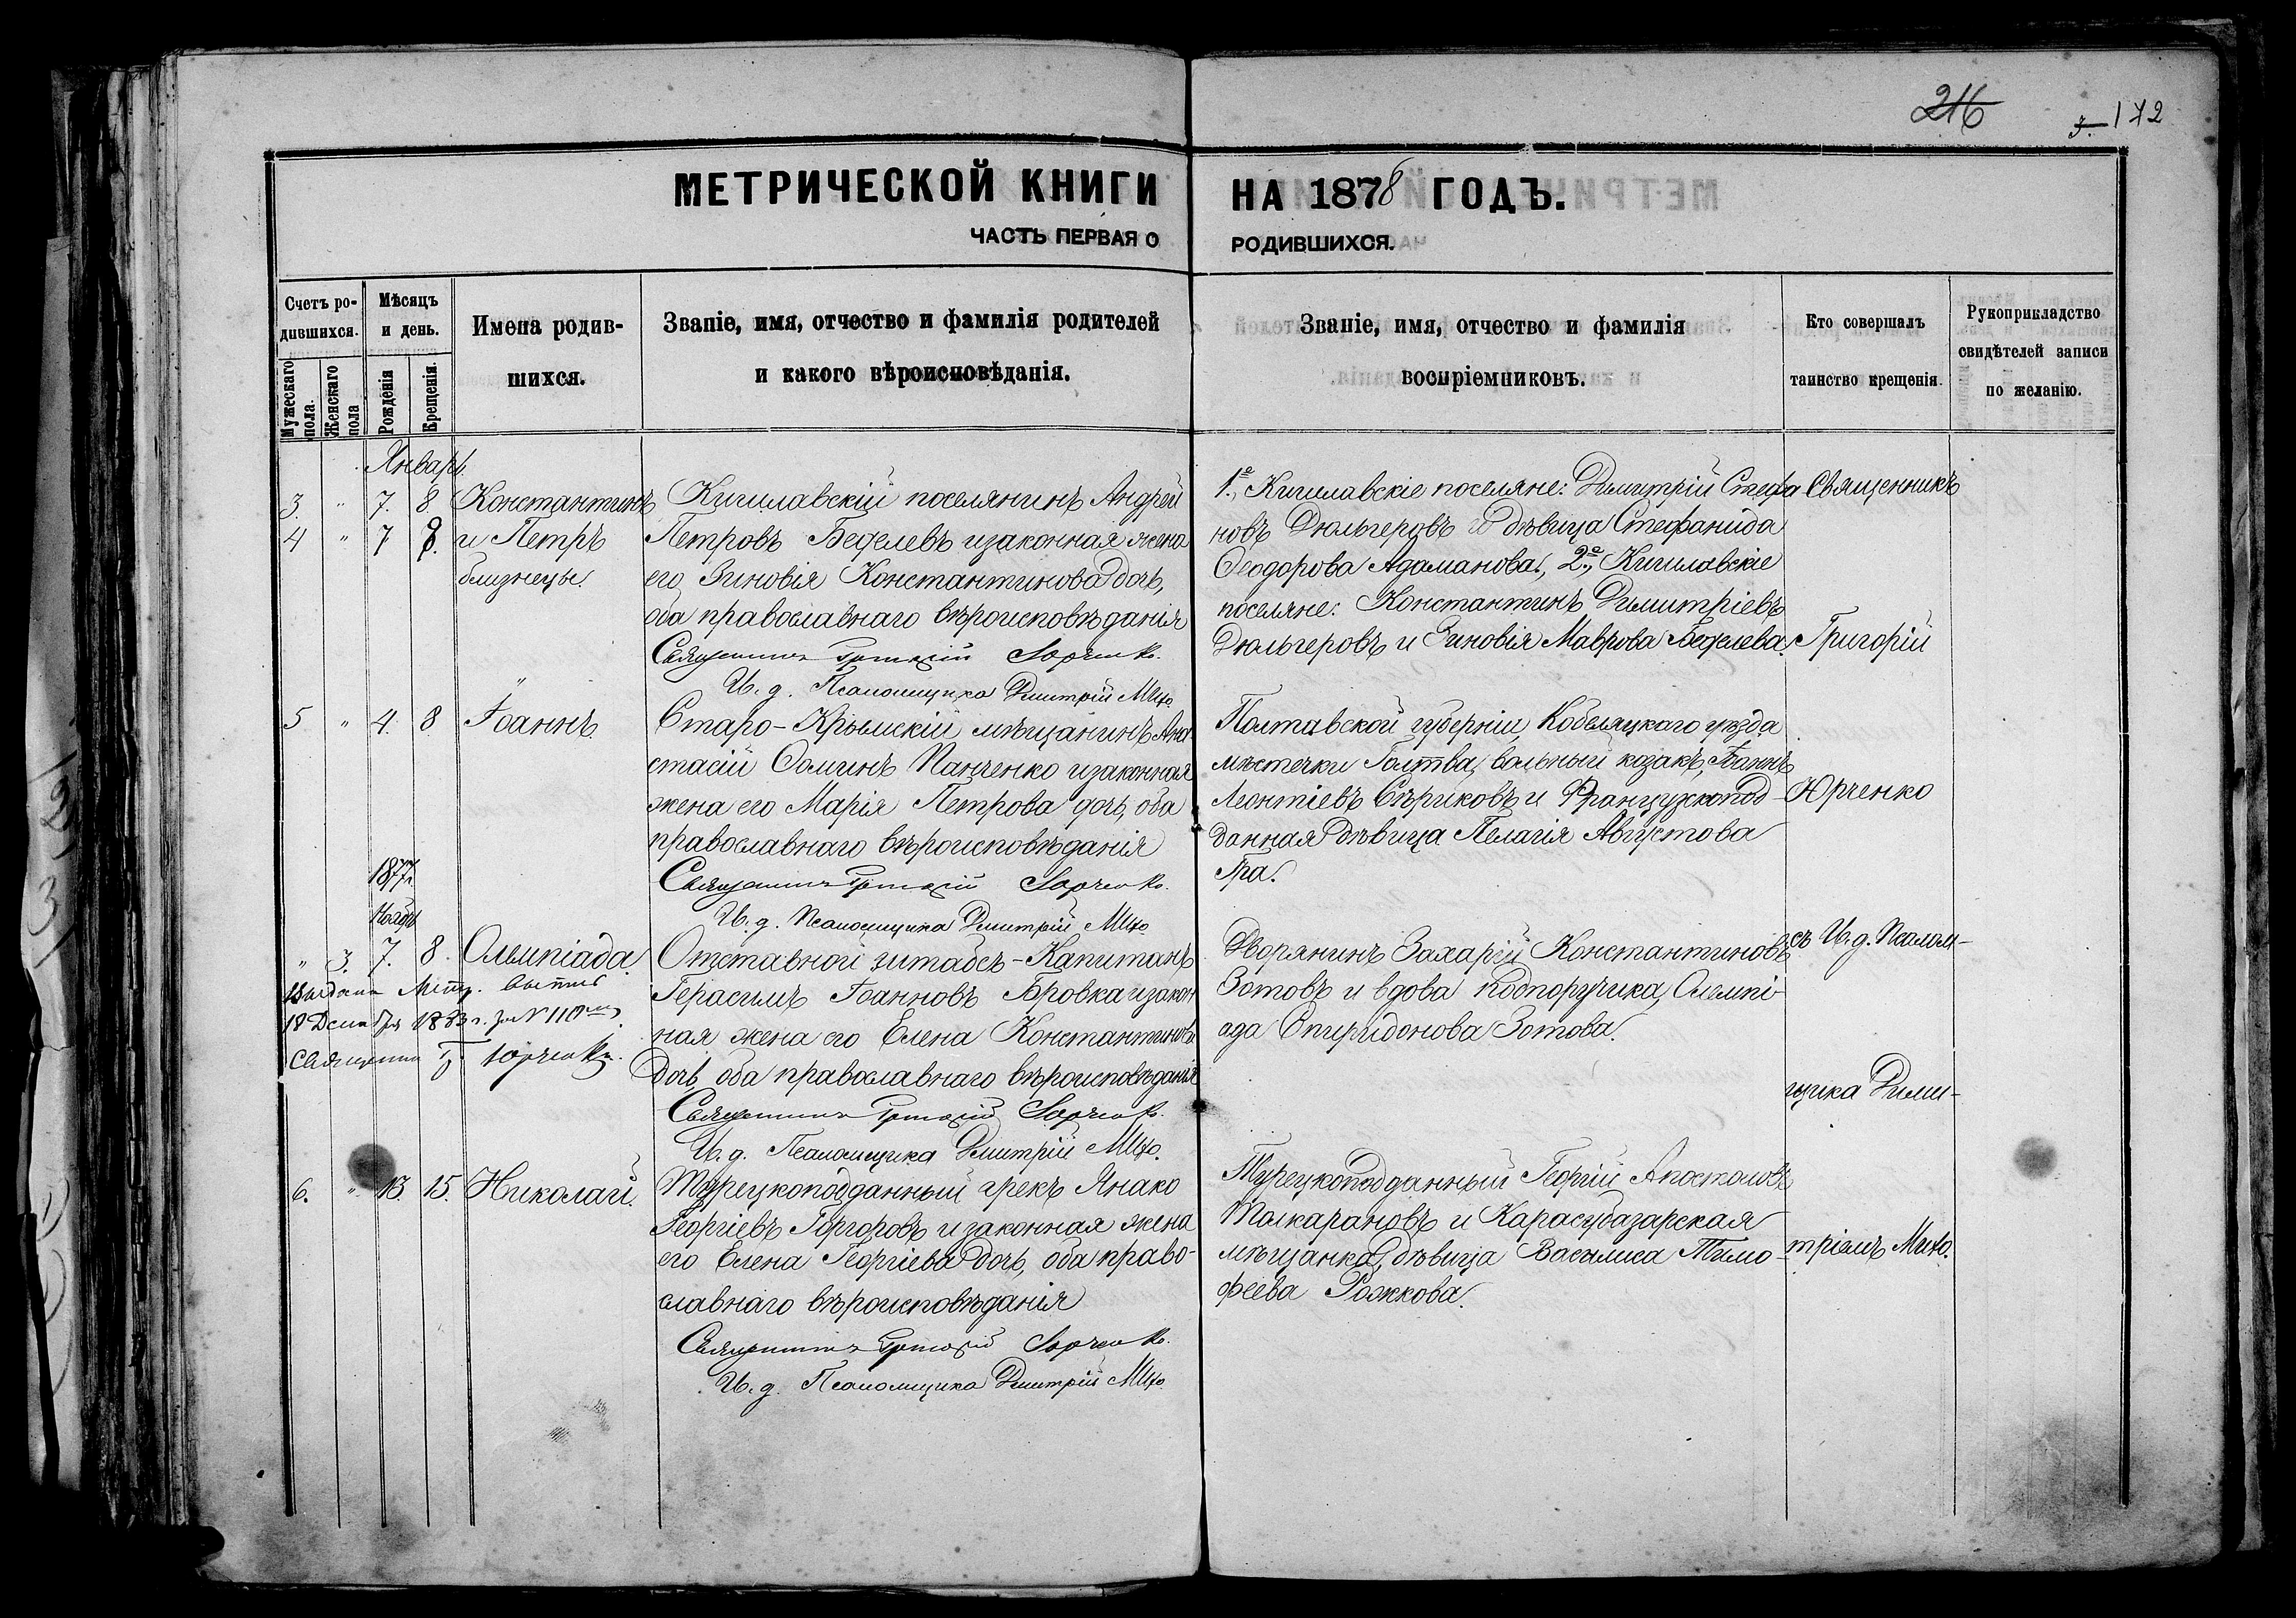 216
172
МЕТРИЧЕСКОЙ КНИГИ НА 1878 ГОДЪ.
ЧАСТЬ ПЕРВАЯ О РОДИВШИХСЯ.
Счетъ ро-
дившихся.
Мужескаго пола.
Женскаго пола
Мѣсяцъ
и день.
Рожденія
Крещенія.
Имена родив-
шихся.
Званіе, имя, отчество и фамилія родителей
и какого вѣроисповѣданія.
Званіе, имя, отчество и фамилія
воспріемниковъ.
Кто совершалъ
таинство крещенія.
Рукоприкладство
свидѣтелей записи
по желанію.
Январь
3. " 7. 8. Константинъ
4 " 7 8. и Петръ
близнецы.
Кишлавскій поселянинъ Андрей
Петровъ Беделевъ и законная жена
его Зиновія Константинова дочь,
оба православнаго вѣроисповѣданія
Священникъ Григорій Юрченко.
И. д. Псаломщика Димитрій Михо.
1е., Кишлавскіе поселяне: Димитрій Стефа
новъ Дюльгеровъ и дѣвица Стефанида
Ѳеодорова Адаманова, 2е., Кишлавскіе
поселяне: Константинъ Димитріевъ
Дюльгеровъ и Зиновія Маврова Беделева.
Священникъ
Григорій
5 " 4. 8 Іоаннъ.
Старо-Крымскій мѣщанинъ Ана
стасій Ѳоминъ Панченко и законная
жена его Марія Петрова дочь, оба
православнаго вѣроисповѣданія
Священникъ Григорій Юрченко.
И. д. Псаломщика Димитрій Михо
Полтавской губерніи, Кобеляцкаго уѣзда
мѣстечки Голтва, вольный козакъ, Іоаннъ
Леонтіевъ Сѣриковъ и Французкопод-
данная дѣвица Пелагія Августова
Гра.
Юрченко
1877г.
Ноябрь
" 3. 7. 8. Олимпіада
Выдана Метр. выпись
18 Декабря 1883 г. за № 110
Священникъ Гр. Юрченко.
Отставной штабсъ-Капитанъ
Герасимъ Іоанновъ Бровка и закон
ная жена его Елена Константинова
дочь, оба православнаго вѣроисповѣданія
Священникъ Григорій Юрченко.
И. д. Псаломщика Димитрій Михо.
Дворянинъ Захарій Константиновъ
Зотовъ и вдова подпоручика, Олимпі-
ада Спиридонова Зотова.
съ И. д. Псалом-
щика Дими-
6. " 13. 15. Николай.
Турецкоподданный грекъ Янако
Георгіевъ Горгоровъ и законная жена
его Елена Георгіева дочь, оба право-
славнаго вѣроисповѣданія
Священникъ Григорій Юрченко.
И. д. Псаломщика Димитрій Михо.
Турецкоподданный Георгій Апостоловъ
Толкарановъ и Карасубазарская
мѣщанка, дѣвица Васылиса Тимо-
феева Рожкова.
тріемъ Михо.